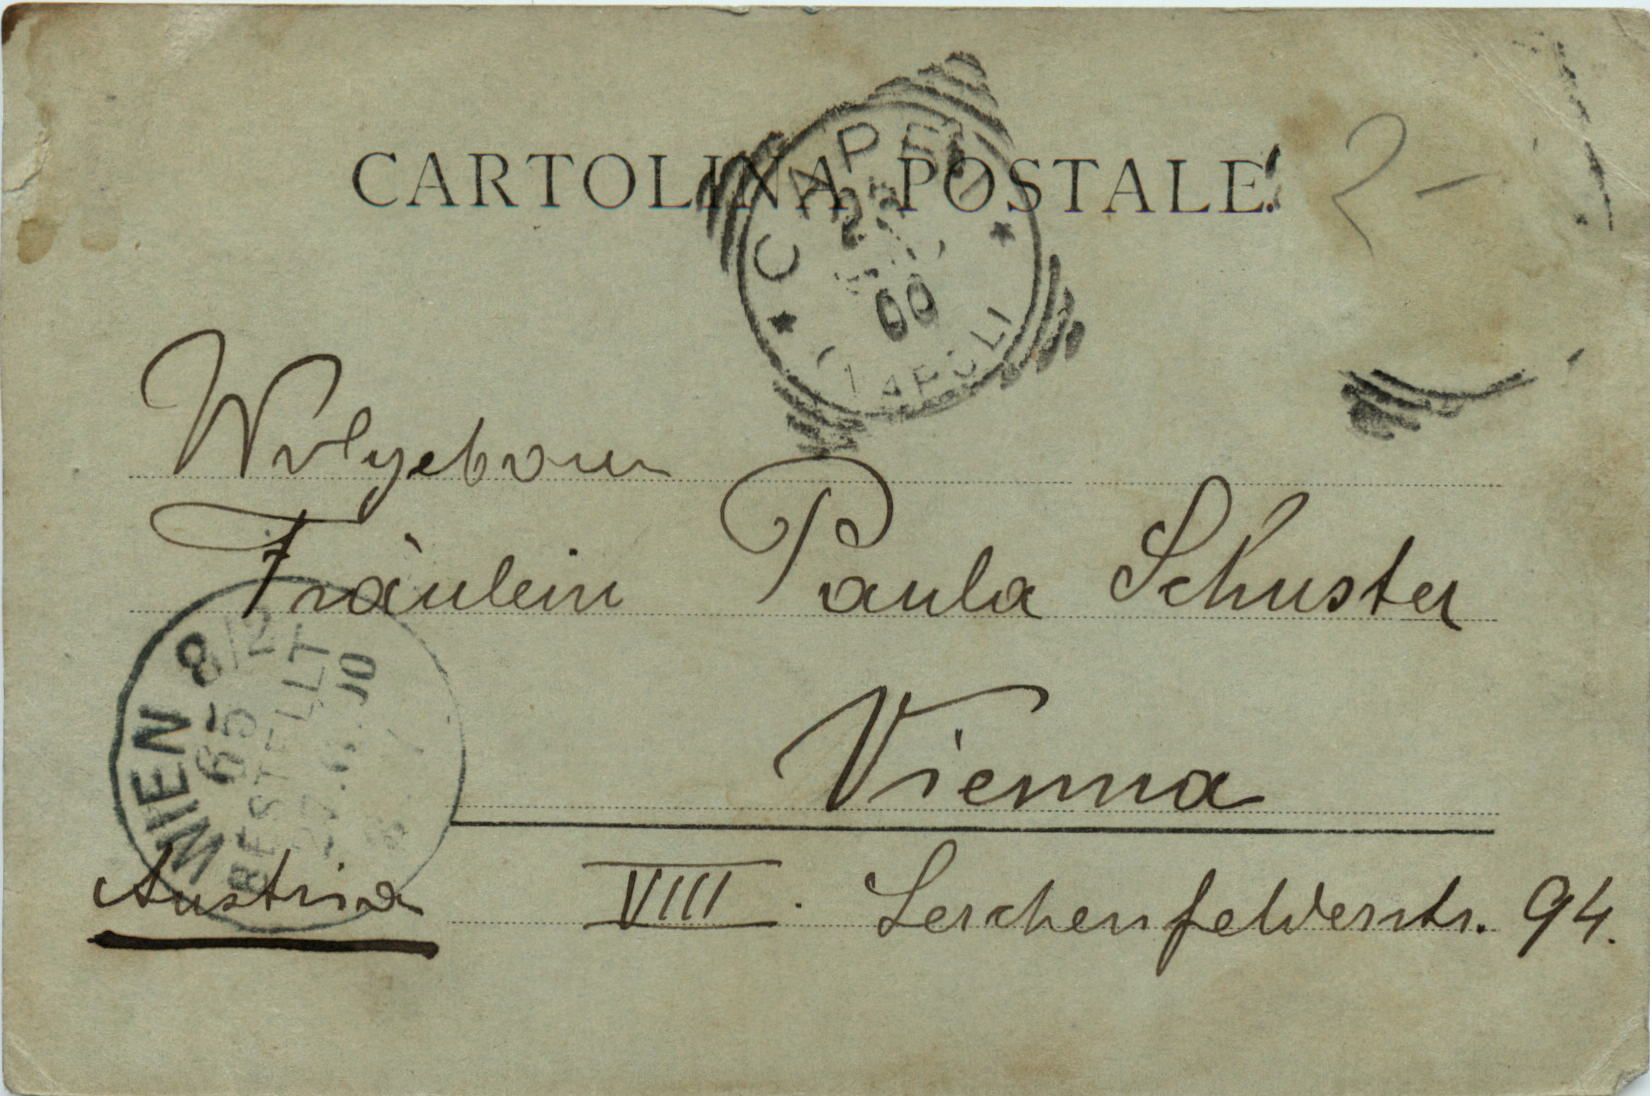 CARTOLINA POSTALE.
2-
CAPRI
25
00
NAPOLI
Wolgeborn
Fräulein Paula Schuster
Vienna
WIEN 8/2
65
BESTELLT
Austria
VIII. Lerchenfelderstr. 94.